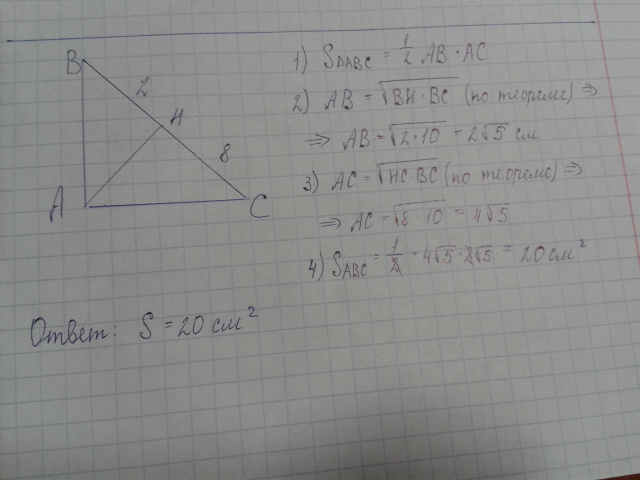 B
2
H
8
A
C
1) S△ABC = 1/2 AB · AC
2) AB = √BH · BC (по теореме) ⇒
⇒ AB = √2·10 = 2√5 см
3) AC = √HC·BC (по теореме) ⇒
⇒ AC = √8·10 = 4√5
4) SABC = 1/2 · 4√5 · 2√5 = 20 см²
Ответ: S = 20 см²